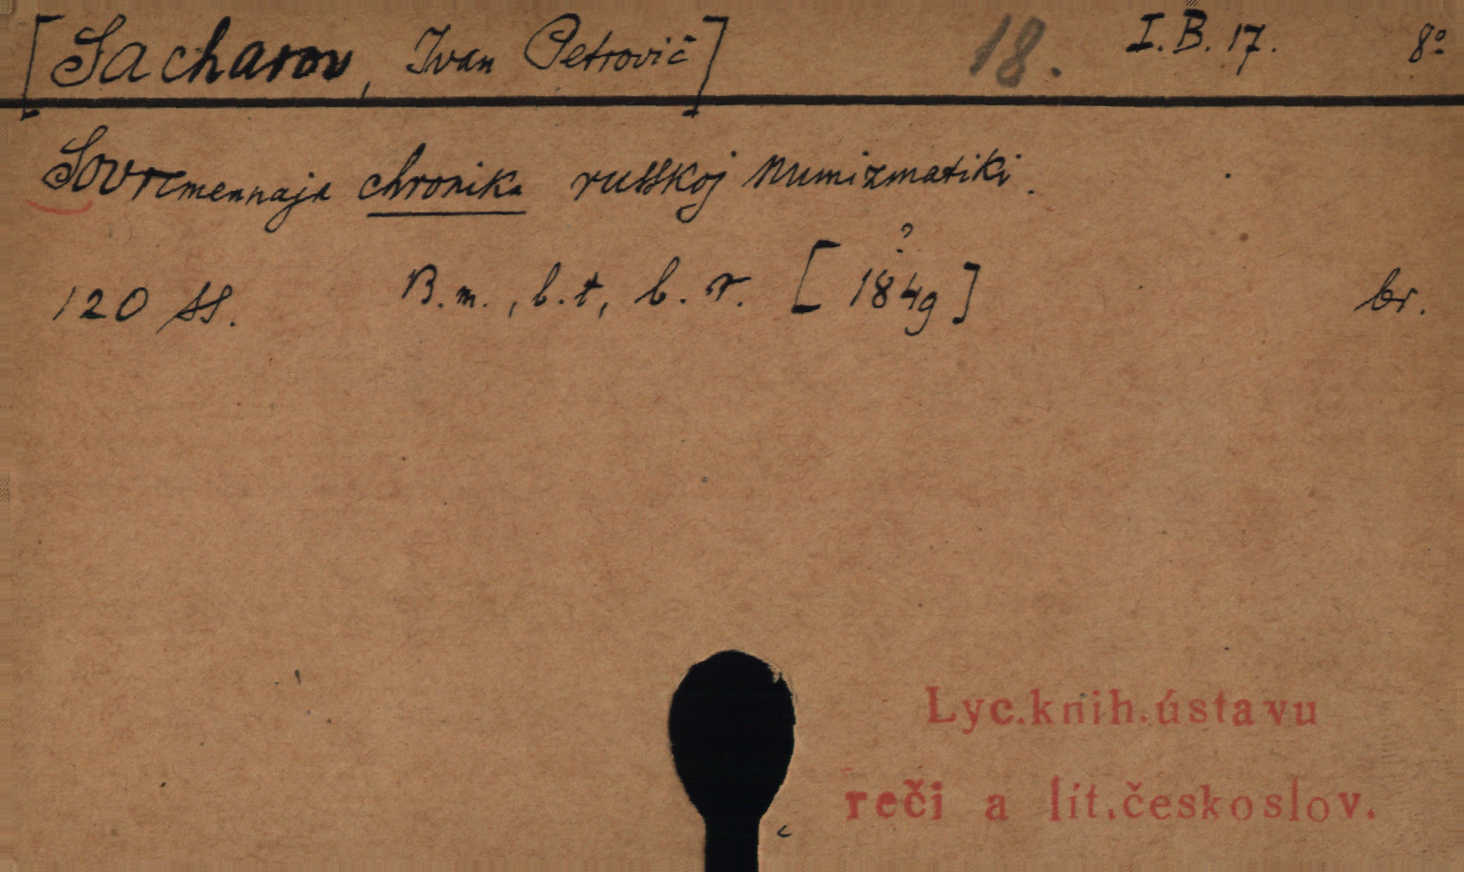 [Sacharov, Ivan Petrovič] 18. I.B.17. 8º
Sovremennaja chronika russkoj numizmatiki.
120 ss. B.m., b.t, b.r. [1849?] br.
Lyc.knih.ústavu
reči a lit.českoslov.